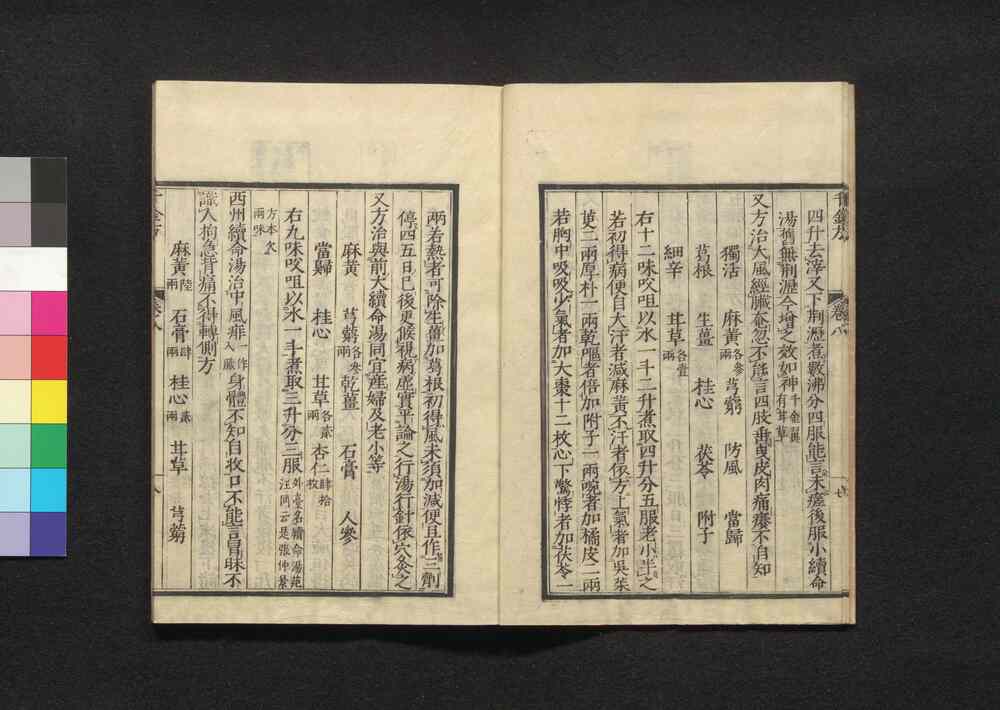 千金方 卷八 七
四升去滓又下荆瀝煮數沸分四服能言未瘥後服小續命
湯舊無荆瀝今增之效如神千金翼有甘草
又方治大風經臟奄忽不能言四肢垂曳皮肉痛癢不自知
獨活 麻黃各參兩 芎藭 防風 當歸
葛根 生薑 桂心 茯苓 附子
細辛 甘草各壹兩
右十二味㕮咀以水一斗二升煮取四升分五服老小半之
若初得病便自大汗者減麻黃不汗者依方上氣者加吳茱
萸二兩厚朴一兩乾嘔者倍加附子一兩啘者加橘皮二兩
若胸中吸吸少氣者加大棗十二枚心下驚悸者加茯苓一
兩若熱者可除生薑加葛根初得風未須加減便且作三劑
停四五日已後更候視病虛實平論之行湯行針依穴灸之
又方治與前大續命湯同宜產婦及老小等
麻黃 芎藭各參兩 乾薑 石膏 人參
當歸 桂心 甘草各貳兩 杏仁肆拾枚
右九味㕮咀以水一斗煮取三升分三服外臺名續命湯范汪同云是張仲景
方本欠兩味
西州續命湯治中風痱一作入臟身體不知自收口不能言冒昧不
識人拘急背痛不得轉側方
麻黃陸兩 石膏肆兩 桂心貳兩 甘草 芎藭
千金方 卷八 八